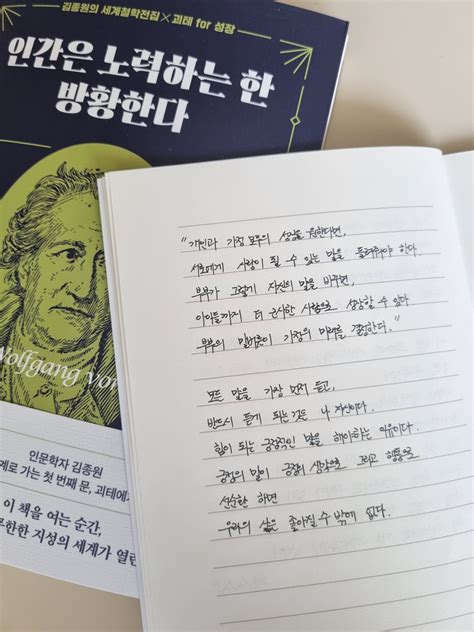 김종원의 세계철학전집×괴테 for 성장
인간은 노력하는 한
방황한다
Wolfgang von
인문학자 김종원
계로 가는 첫 번째 문, 괴테에
이 책을 여는 순간,
무한한 지성의 세계가 열린
"개인과 가정 모두의 성장을 원한다면,
서로에게 사랑이 될 수 있는 말을 들려줘야 한다.
부부가 그렇게 자신의 말을 바꾸면,
아이들까지 더 근사한 사람으로 성장할 수 있다
부부의 말버릇이 가정의 미래를 결정한다."
모든 말을 가장 먼저 듣고,
반드시 듣게 되는 것은 나 자신이다.
힘이 되는 긍정적인 말을 해야하는 이유이다.
긍정의 말이 긍정의 생각으로 그리고 행동으로
선순환 하면
우리의 삶은 좋아질 수 밖에 없다.